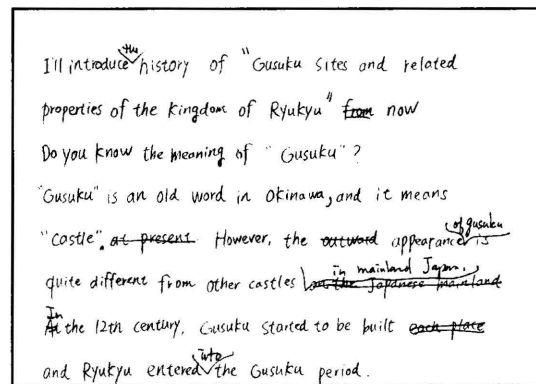 I'll introduce the history of "Gusuku Sites and related
properties of the Kingdom of Ryukyu" from now
Do you know the meaning of "Gusuku"?
"Gusuku" is an old word in Okinawa, and it means
"castle". at present However, the outward appearance of gusuku is
quite different from other castles in mainland Japan. on the Japanese mainland
In the 12th century, Gusuku started to be built each place
and Ryukyu entered into the Gusuku period.